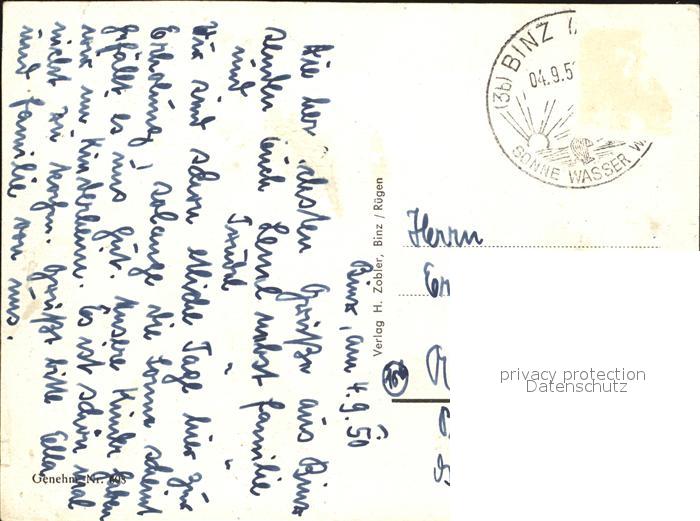 Binz, am 4.9.50
Die herzlichsten Grüße aus Binz
senden Euch Lene nebst Familie
und Trudel
Wir sind schon etliche Tage hier zur
Erholung, solange die Sonne scheint
gefällt es uns gut. Unsere Kinder haben
wir im Kinderheim. Es ist schön mal
nicht zu sorgen. Grüßt bitte Ella
und Familie von uns.
Genehm. Nr. 803
Verlag H. Zobler, Binz / Rügen
(3b) BINZ
04.9.5
SONNE WASSER W
Herrn
privacy protection
Datenschutz